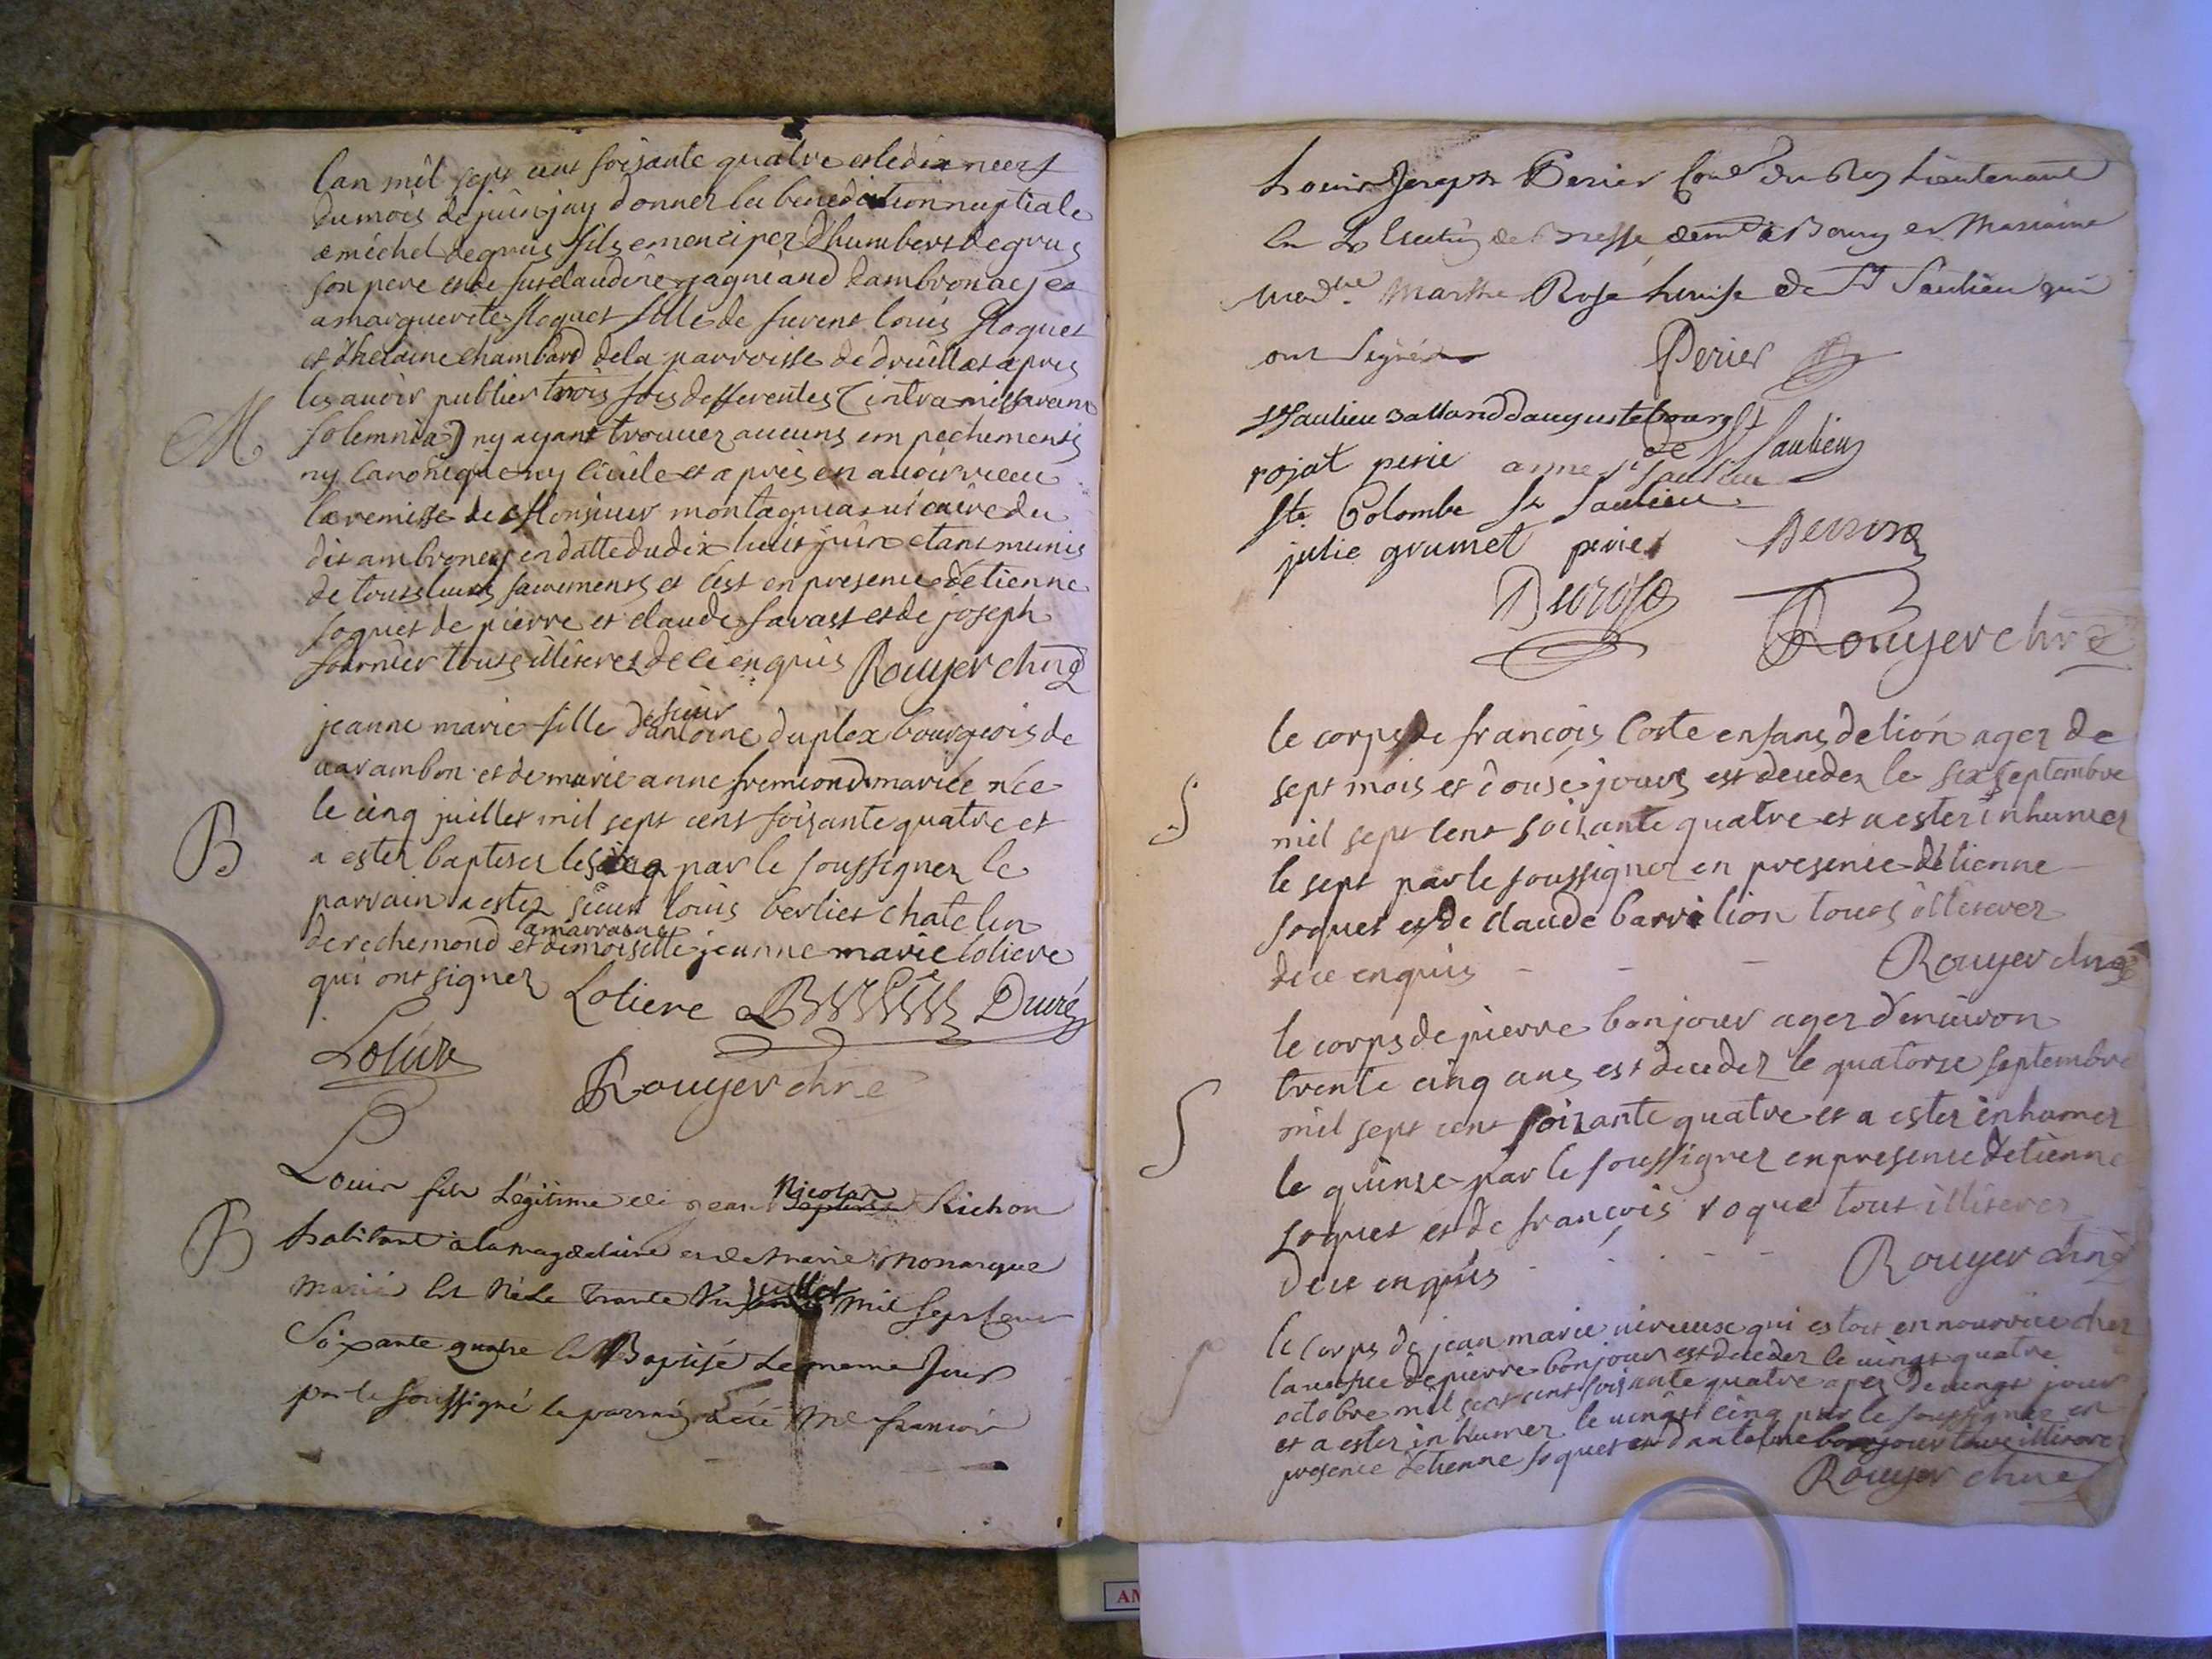 lan mil sept cent soisante quatre et le dix neuf
du mois de juin jay donner la benediction nuptiale
a mechel degrus fils emenciper d'humbert degrus
son pere et de fut claudine gagniand dambronac et
a marguerite floquet fille de furent louis floquet
et d'helaine chambard dela parroisse de druillet apres
les avoir publier trois fois defferentes (intra missarum
M
solemnia) ny ayant trouver aucuns em pechements
ny canonique ny civile et apres en avoir receu
la remisse de Monsieur montagnia vicaire du
dit ambroney en datte du dix huit juin etant munis
de touts leurs sacrements et cest en presence detienne
soquet de pierre et claude savast et de joseph
fournier touts illiteres de ce enquis Rouyer chne
jeanne marie fille de sieur antoine duplex bourgeois de
varambon et de marie anne fremiond mariée née
le cinq juillet mil sept cent soisante quatre et
B
a ester baptiser le six par le soussigner le
parrain a ester sieur louis berliet chatelin
de rechemond et amarraine demoiselle jeanne marie loliere
qui ont signer Loliere Duré
Lolière
Rouyer chne
Louis fils Légitime de jean Nicolas Richon
B
habitant a la magdelaine et de Marie Monarque
Mariés est Né le Trante Un juillet mil Sept Cent
Soixante quatre et Baptisé Le meme Jour
par le soussigné le parrain a été Mre francois
Louis Joseph Perier Coner du Roy Lieutenant
en L'Election de Bresse demt a Bourg et Marraine
Mad.lle Marthe Rose henise de St Saulieu qui
ont Signés Perier
St Saulieu Balland daugustebourg
rojat perie anne St Saulieu de St Saulieu
Ste Colombe St Saulieu
julie grumet perier
Durose
Rouyer chne
le corps de francois Coste enfans de lion ager de
sept mois et douse jours est deceder le six septembre
S
mil sept cent soixante quatre et a ester inhumer
le sept par le soussigner en presence detienne
soquet et de claude barvilion touts illiterer
de ce enquis - - - Rouyer chne
le corps de pierre bonjour ager d'environ
trente cinq ans est deceder le quatorse septembre
S
mil sept cent soizante quatre et a ester inhumer
le quinse par le soussigner en presence detienne
soquet et de françois roque tout illiterer
de ce enquis - - - Rouyer chne
S
le corps de jean marie vireuse qui estoit en nourrice chez
la veufve de pierre bonjour est deceder le vingt quatre
octobre mil sept cent soisante quatre ager de vingt jour
et a ester inhumer le vingt cinq par le soussigner en
presence detienne soquet et d'antoine bonjour touts illiterer
Rouyer chne